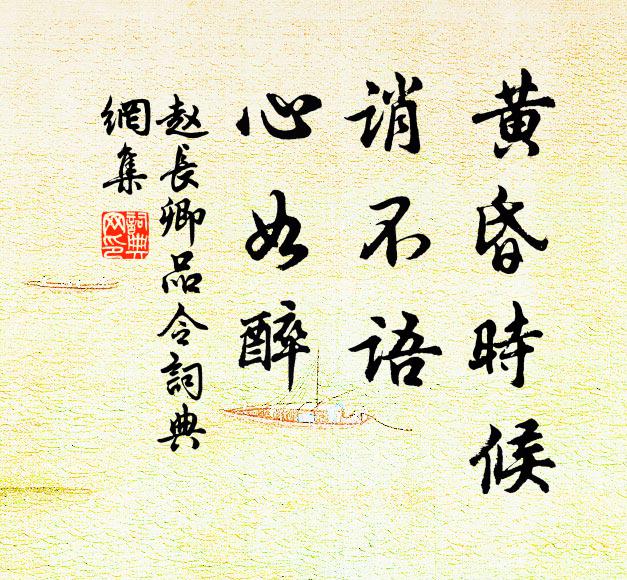 黄昏時候
誚不語
心如醉
赵長卿品令詞典
網集
詞典
网印